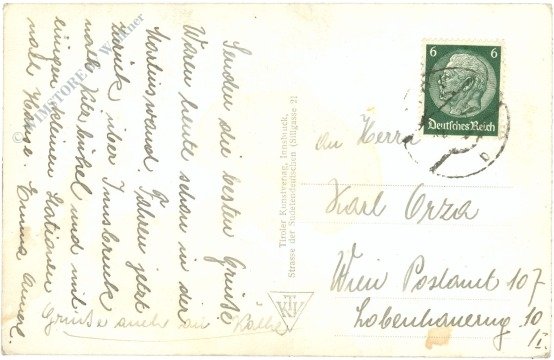 Senden die besten Grüße
Waren heute schon in der
Martinswand. Fahren jetzt
zurück über Innsbruck
nach Kitzbühel und mit
einigen kleinen Stationen
nach Hause Emma
Grüße auch an Käthe
Tiroler Kunstverlag, Innsbruck,
Strasse der Sudetendeutschen (Stilgasse 2)
6 6
Deutsches Reich
An Herrn
Karl Orza
Wien Postamt 107
Lobenhauerng. 10
/I.